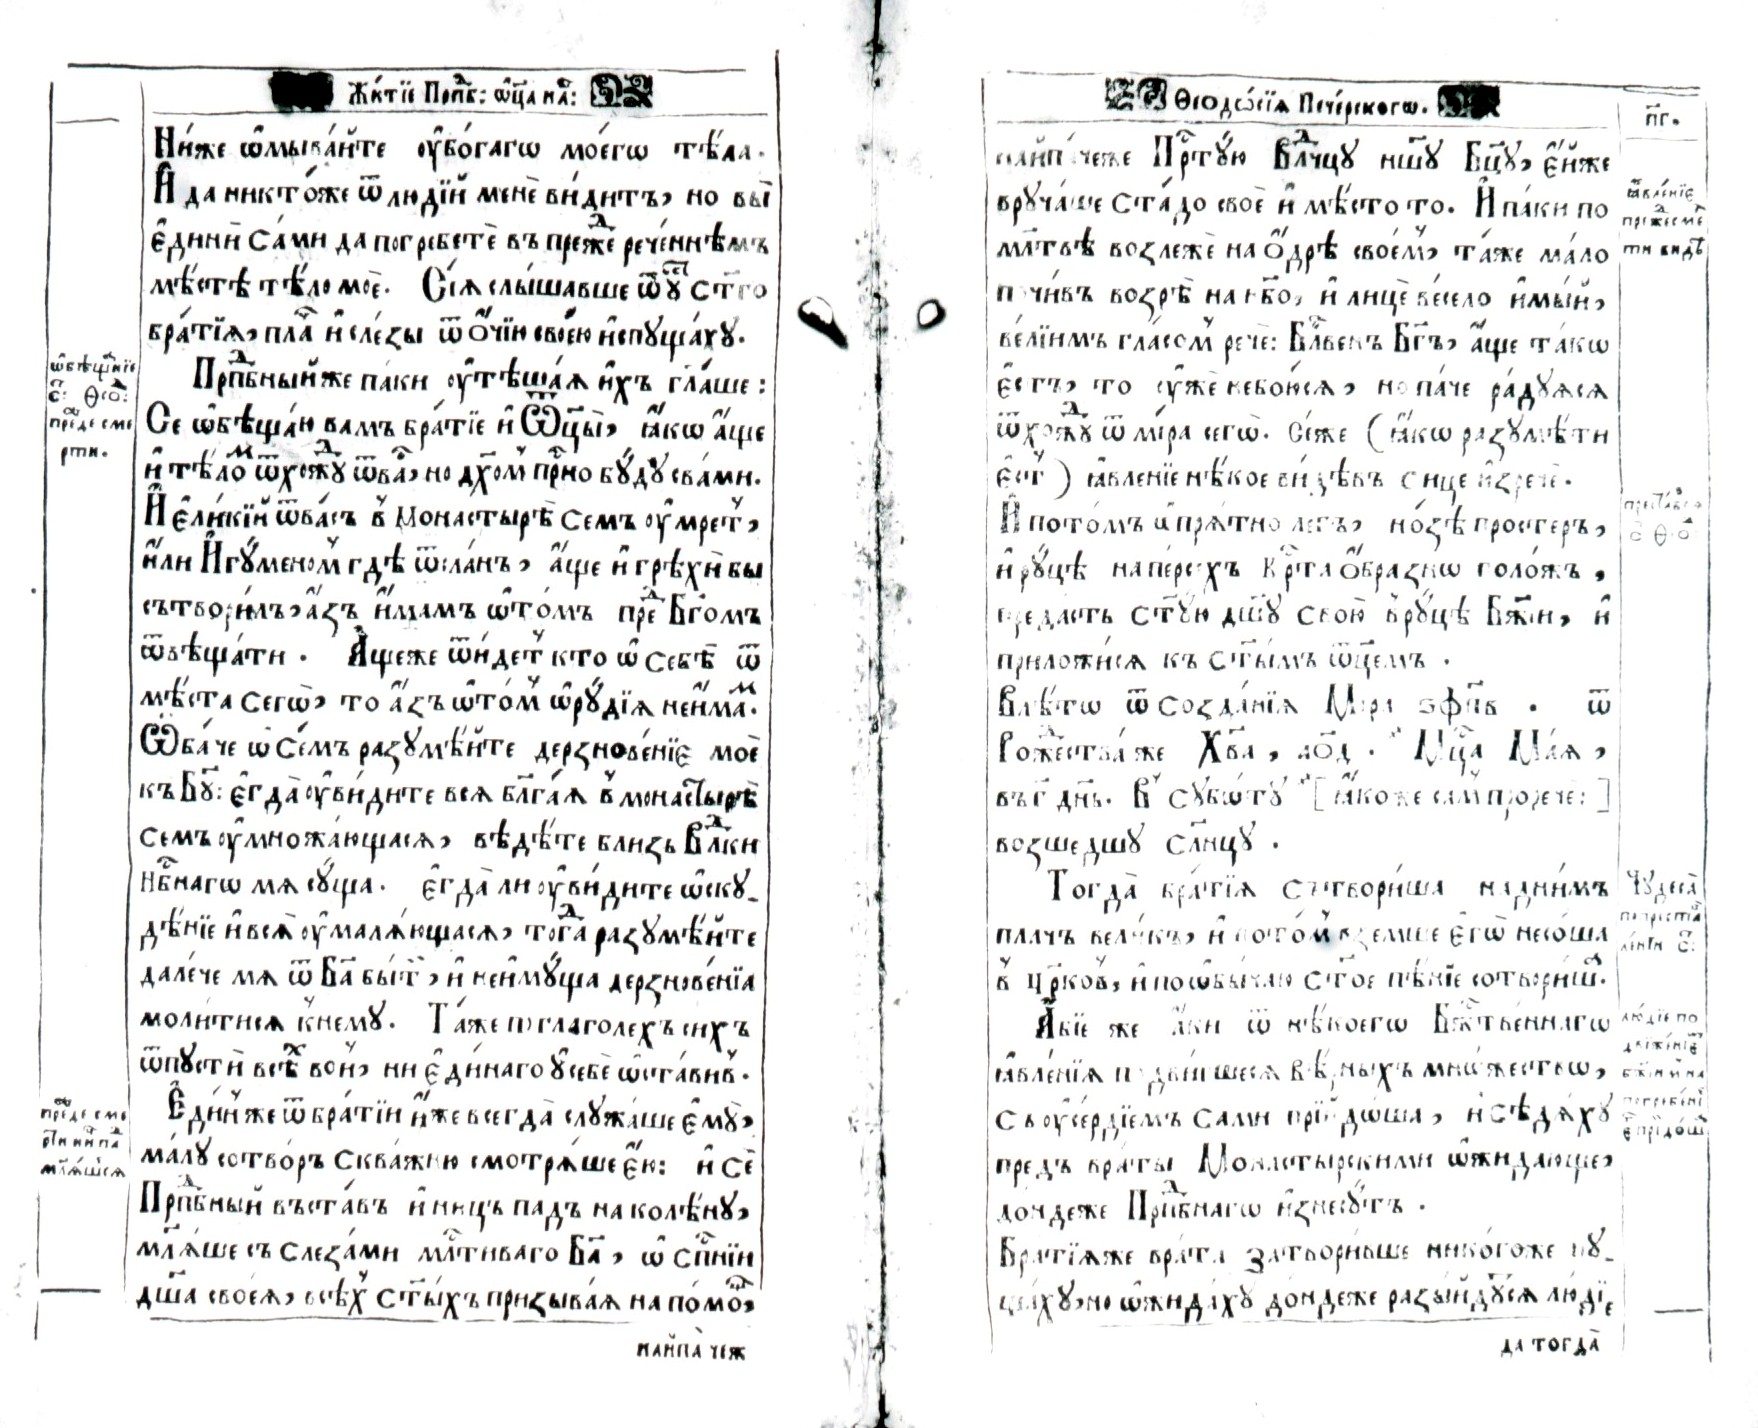 Жи́тїе Прпⷣб: ѡ҆ц҃а на́ⷲ:
Ни́же ѡ҆мыва́йте ᲂу҆бо́гагѡ мое́гѡ тѣ́ла.
И҆ да никто́же ѿ людїй менѐ ви́дитъ, но вы̀
є҆ди́ни са́ми да погребетѐ въ преⷤⷣе рече́ннѣмъ
мѣ́стѣ тѣ́ло моѐ. Сїѧ̀ слы́шавше ѿ ᲂу҆стъ ст҃го
бра́тїѧ, пла́ⷱ и҆ сле́зы ѿ о҆́чїю свое́ю и҆спуща́ху.
ѡ҆бѣща́нїе
с҃: Ѳео́ⷣ:
преⷤде сме
рти.
Прпⷣбный же па́ки ᲂу҆тѣша́ѧ и҆̀хъ гл҃аше:
Се ѡ҆бѣща́ю вамъ бра́тїе и҆ Ѿц҃ы̀, ꙗ҆́кѡ а҆́ще
и҆ тѣ́лоⷨ ѿхожⷣу ѿ ва́ⷭ, но дх҃омъ прⷭ҇но бу́ду сва́ми.
И҆ є҆ли́кїй ѿ ва́съ в Монастырѣ̀ семъ ᲂу҆мретъ,
и҆́ли И҆гу́меномъ гдѣ̀ ѿсла́нъ, а҆́ще и҆ грѣхѝ бы
сътвори́лъ, а҆́зъ и҆́мамъ ѡ҆то́мъ преⷣ Бг҃омъ
ѿвѣща́ти. А҆́щеже ѿи́детъ кто ѡ҆ себѣ̀ ѿ
мѣ́ста сегѡ̀, то а҆́зъ ѡ҆то́мъ ѡ҆ру́дїѧ не и҆́маⷨ.
Ѿба́че ѡ҆ се́мъ разумѣ́йте дерзнове́нїе моѐ
къ Бг҃у: є҆гда̀ ᲂу҆ви́дите всѧ̀ бл҃га́ѧ в монастырѣ̀
семъ ᲂу҆множа́ющасѧ, вѣ́дѣте близь Влⷣки
нбⷭ҇нагѡ мѧ су́ща. Є҆гда̀ ли ᲂу҆ви́дите ѡ҆ску_
дѣ́нїе и҆ всѧ̀ ᲂу҆малѧ́ющасѧ, тогⷣа разумѣ́йте
дале́че мѧ ѿ Бг҃а бы́ти, и҆ не и҆му́ща дерзнове́нїѧ
моли́тисѧ к нему. Та́же по глаголехъ сихъ
ѿпустѝ всѣⷯ вонъ, ни є҆ди́наго у҆ себѐ ѡ҆ста́вивъ.
Є҆ди́нъ же ѿ бра́тїи и҆́же всегда̀ служа́ше є҆мꙋ̀,
ма́лу сотво́ръ сква́жню смотрѧ́ше є҆́ю: и҆ сѐ
преⷤде сме
рти
млѧ́шесѧ
Прпⷣбный въста́въ и҆ ницъ падъ на колѣ́ну,
мл҃ѧ́ше съ слеза́ми млⷭ҇тиваго Бг҃а, ѡ҆ сп҃се́нїи
дш҃а своеѧ̀, всѣ́хъ ст҃ы́хъ призыва́ѧ на по́моⷳ,
найпа̀ чеж
Ѳеодѡ́сїѧ Пече́рскогѡ.
п҃г.
найпа́чеже Прⷭ҇ту́ю Влⷣчцу нш҃у Бц҃у, є҆́йже
вруча́ше ста́до своѐ и҆ мѣ́сто то. И҆ па́ки по
мл҃твѣ возлежѐ на о҆дрѣ̀ свое́мъ, та́же ма́ло
почи́въ возрѣ̀ на нб҃о, и҆ лицѐ ве́село и҆мы́й,
ве́лїимъ гла́сомъ речѐ: Блⷭ҇ве́нъ Бг҃ъ, а҆́ще та́кѡ
є҆́стъ, то ᲂу҆жѐ небою́сѧ, но па́че ра́дуѧсѧ
ѿхожⷣу ѿ мі́ра сегѡ̀. Се́же (ꙗ҆́кѡ разумѣ́ти
є҆́ст) ꙗ҆вле́нїе нѣ́кое ви́дѣвъ сице и҆зречѐ.
ꙗ҆вле́нїе
преⷤⷣе сме
ти видѣ
И҆ пото́мъ ѡ҆прѧ́тно легъ, но́зѣ простеръ,
и҆ ру́цѣ на пе́рсехъ крⷭ҇та о҆́бразнѡ положъ,
предасть ст҃у́ю дш҃у свою̀ в ру́цѣ Бж҃іи, и҆
приложи́сѧ къ ст҃ы́мъ ѿц҃емъ.
Влѣ́тѡ ѿ созда́нїѧ Мира ѕ҂фп҃в. ѿ
Рожⷣества́ же Хв҃а, ҂аѻ҃д. Мцⷭ҇а Маѧ,
въ г҃ дн҃ь. В субѡ́ту [ꙗ҆коже самъ прорече:]
возшедшу сл҃нцу.
Тогда̀ бра́тїѧ сътвори́ша надни́мъ
плачъ вели́къ, и҆ пото́мъ вземше є҆гѡ̀ несо́ша
в цр҃ковъ, и҆ поѡ҆бы́чаю ст҃ое пѣ́нїе сотвори́ш.
Чудеса̀
по преста́в
ле́нїи с҃:
А҆́бїе же а҆́ки ѿ нѣ́коегѡ Бжⷭ҇тве́ннагѡ
ꙗ҆вле́нїѧ подви́гшесѧ вѣ́рныхъ мно́жествѡ,
съ ᲂу҆се́рдїемъ сами прїидѡ́ша, и҆ сѣдѧ́ху
предъ враты̀ Монастырскими ѡ҆жида́юще,
до́ндеже Прпⷣбнагѡ и҆знесу́тъ.
лю́дїе по
движе́нїе
бж҃їи на
погребе́нїе
є҆г҃ѡ прїидо́ш
Бра́тїѧже врата̀ затвори́вше нико́гоже пу_
ща́ху, но ѡ҆жида́ху до́ндеже разы́йдусѧ лю́дїе
да тогда̀